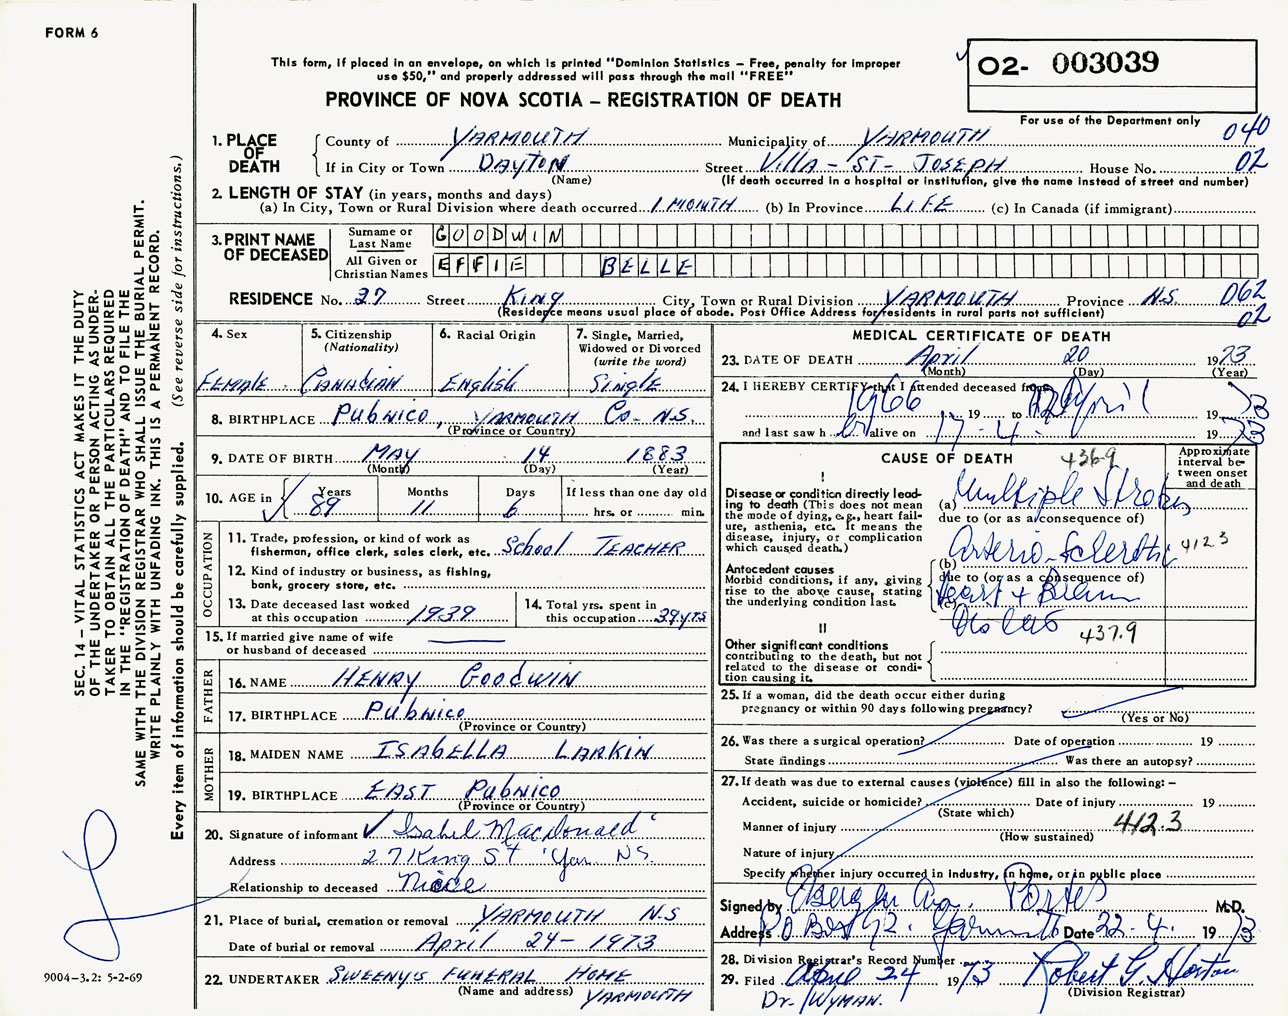 FORM 6
This form, if placed in an envelope, on which is printed "Dominion Statistics – Free, penalty for improper
use $50," and properly addressed will pass through the mail "FREE"
PROVINCE OF NOVA SCOTIA – REGISTRATION OF DEATH
02- 003039
For use of the Department only
040
02
1. PLACE OF DEATH
County of YARMOUTH Municipality of YARMOUTH
If in City or Town DAYTON Street VILLA - ST - JOSEPH House No.
(Name) (If death occurred in a hospital or institution, give the name instead of street and number)
2. LENGTH OF STAY (in years, months and days)
(a) In City, Town or Rural Division where death occurred 1 MONTH (b) In Province LIFE (c) In Canada (if immigrant)
3. PRINT NAME OF DECEASED
Surname or Last Name GOODWIN
All Given or Christian Names EFFIE BELLE
RESIDENCE No. 27 Street King City, Town or Rural Division YARMOUTH Province N.S. 062
(Residence means usual place of abode. Post Office Address for residents in rural parts not sufficient) 02
4. Sex
FEMALE
5. Citizenship
(Nationality)
CANADIAN
6. Racial Origin
English
7. Single, Married,
Widowed or Divorced
(write the word)
Single
8. BIRTHPLACE Pubnico, YARMOUTH Co- N.S.
(Province or Country)
9. DATE OF BIRTH MAY 14 1883
(Month) (Day) (Year)
10. AGE in
Years Months Days If less than one day old
89 11 6 hrs. or min.
OCCUPATION
11. Trade, profession, or kind of work as
fisherman, office clerk, sales clerk, etc. School TEACHER
12. Kind of industry or business, as fishing,
bank, grocery store, etc.
13. Date deceased last worked
at this occupation 1939
14. Total yrs. spent in
this occupation 39 yrs
15. If married give name of wife
or husband of deceased
FATHER
16. NAME HENRY GOODWIN
17. BIRTHPLACE Pubnico
(Province or Country)
MOTHER
18. MAIDEN NAME ISABELLA LARKIN
19. BIRTHPLACE EAST Pubnico
(Province or Country)
20. Signature of informant Isabel MacDonald
Address 27 King St Yar. NS.
Relationship to deceased Niece
21. Place of burial, cremation or removal YARMOUTH N.S
Date of burial or removal April 24 - 1973
22. UNDERTAKER SWEENY'S FUNERAL HOME
(Name and address) YARMOUTH
MEDICAL CERTIFICATE OF DEATH
23. DATE OF DEATH April 20 1973
(Month) (Day) (Year)
24. I HEREBY CERTIFY that I attended deceased from
1966 19 to April 19 73
and last saw h er alive on 17-4- 19 73
CAUSE OF DEATH 436.9
Approximate
interval be-
tween onset
and death
I
Disease or condition directly lead-
ing to death (This does not mean
the mode of dying, e.g., heart fail-
ure, asthenia, etc. It means the
disease, injury, or complication
which caused death.)
(a) Multiple Strokes
due to (or as a consequence of)
Antecedent causes
Morbid conditions, if any, giving
rise to the above cause, stating
the underlying condition last.
(b) Arterio-Sclerotic 412.3
due to (or as a consequence of)
(c) Heart + Brain
437.9
II
Other significant conditions
contributing to the death, but not
related to the disease or condi-
tion causing it.
25. If a woman, did the death occur either during
pregnancy or within 90 days following pregnancy?
(Yes or No)
26. Was there a surgical operation? Date of operation 19
State findings Was there an autopsy?
27. If death was due to external causes (violence) fill in also the following: –
Accident, suicide or homicide? Date of injury 19
(State which)
Manner of injury 412.3
(How sustained)
Nature of injury
Specify whether injury occurred in industry, in home, or in public place
Signed by M.D.
Address P O Box Yarmouth Date 22-4. 1973
28. Division Registrar's Record Number
29. Filed April 24 1973 Robert G. Horton
(Division Registrar)
Dr. WYMAN.
SEC. 14 – VITAL STATISTICS ACT MAKES IT THE DUTY
OF THE UNDERTAKER OR PERSON ACTING AS UNDER-
TAKER TO OBTAIN ALL THE PARTICULARS REQUIRED
IN THE "REGISTRATION OF DEATH" AND TO FILE THE
SAME WITH THE DIVISION REGISTRAR WHO SHALL ISSUE THE BURIAL PERMIT.
WRITE PLAINLY WITH UNFADING INK. THIS IS A PERMANENT RECORD.
Every item of information should be carefully supplied. (See reverse side for instructions.)
9004–3.2: 5-2-69